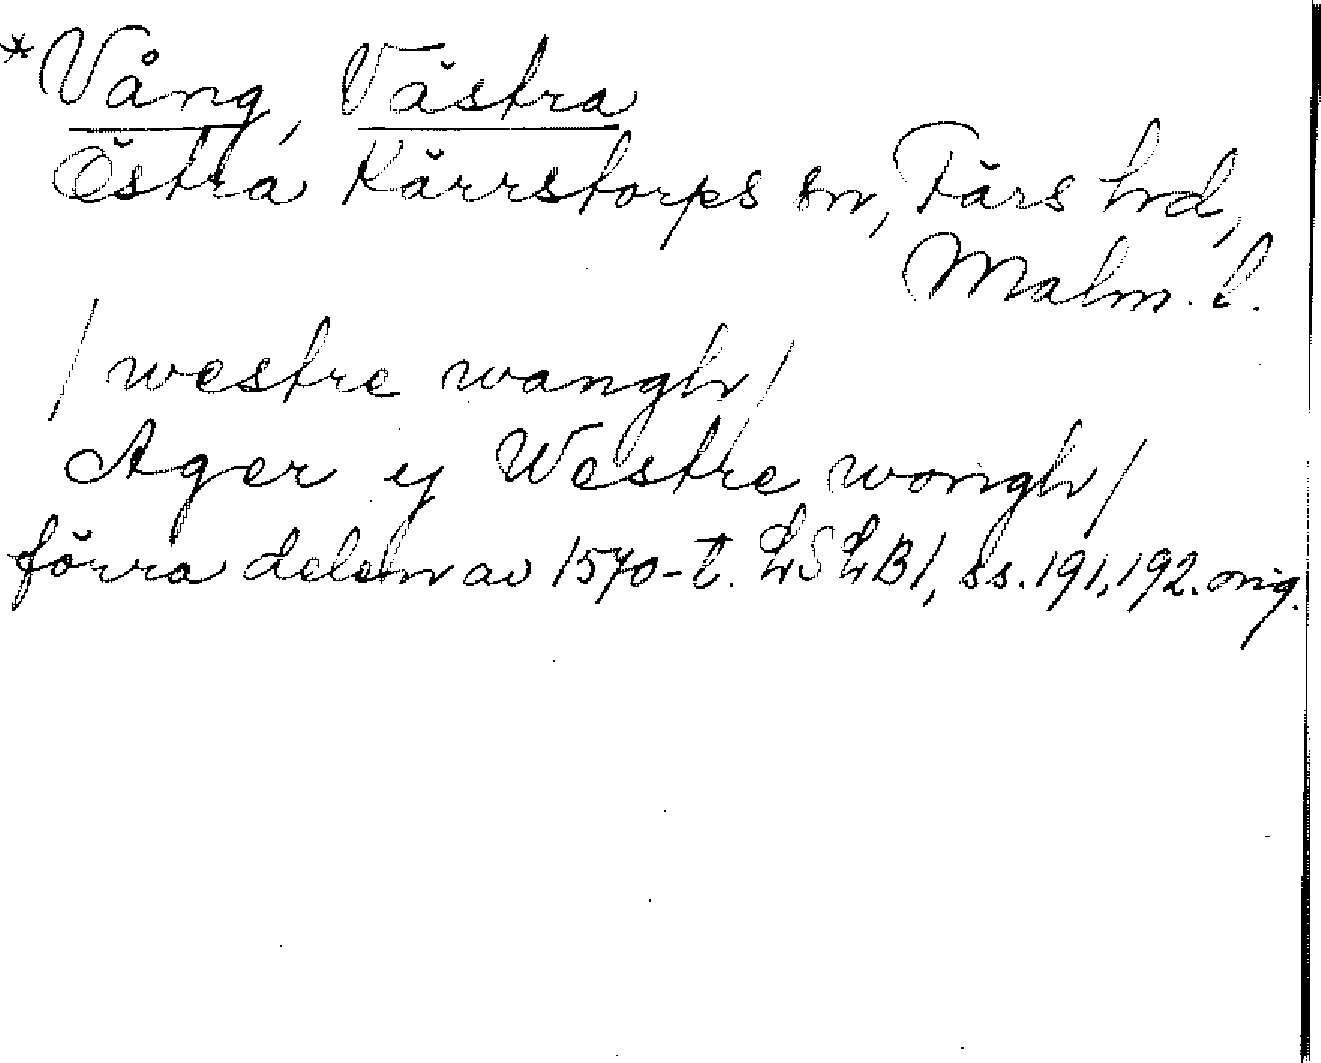 *Vång, Västra
Östra Kärrstorps sn, Färs hd,
Malm. l.
/westre wangh/
Ager ij Westre wongh/
förra delen av 1570-t. LSLB1, ss. 191, 192. orig.